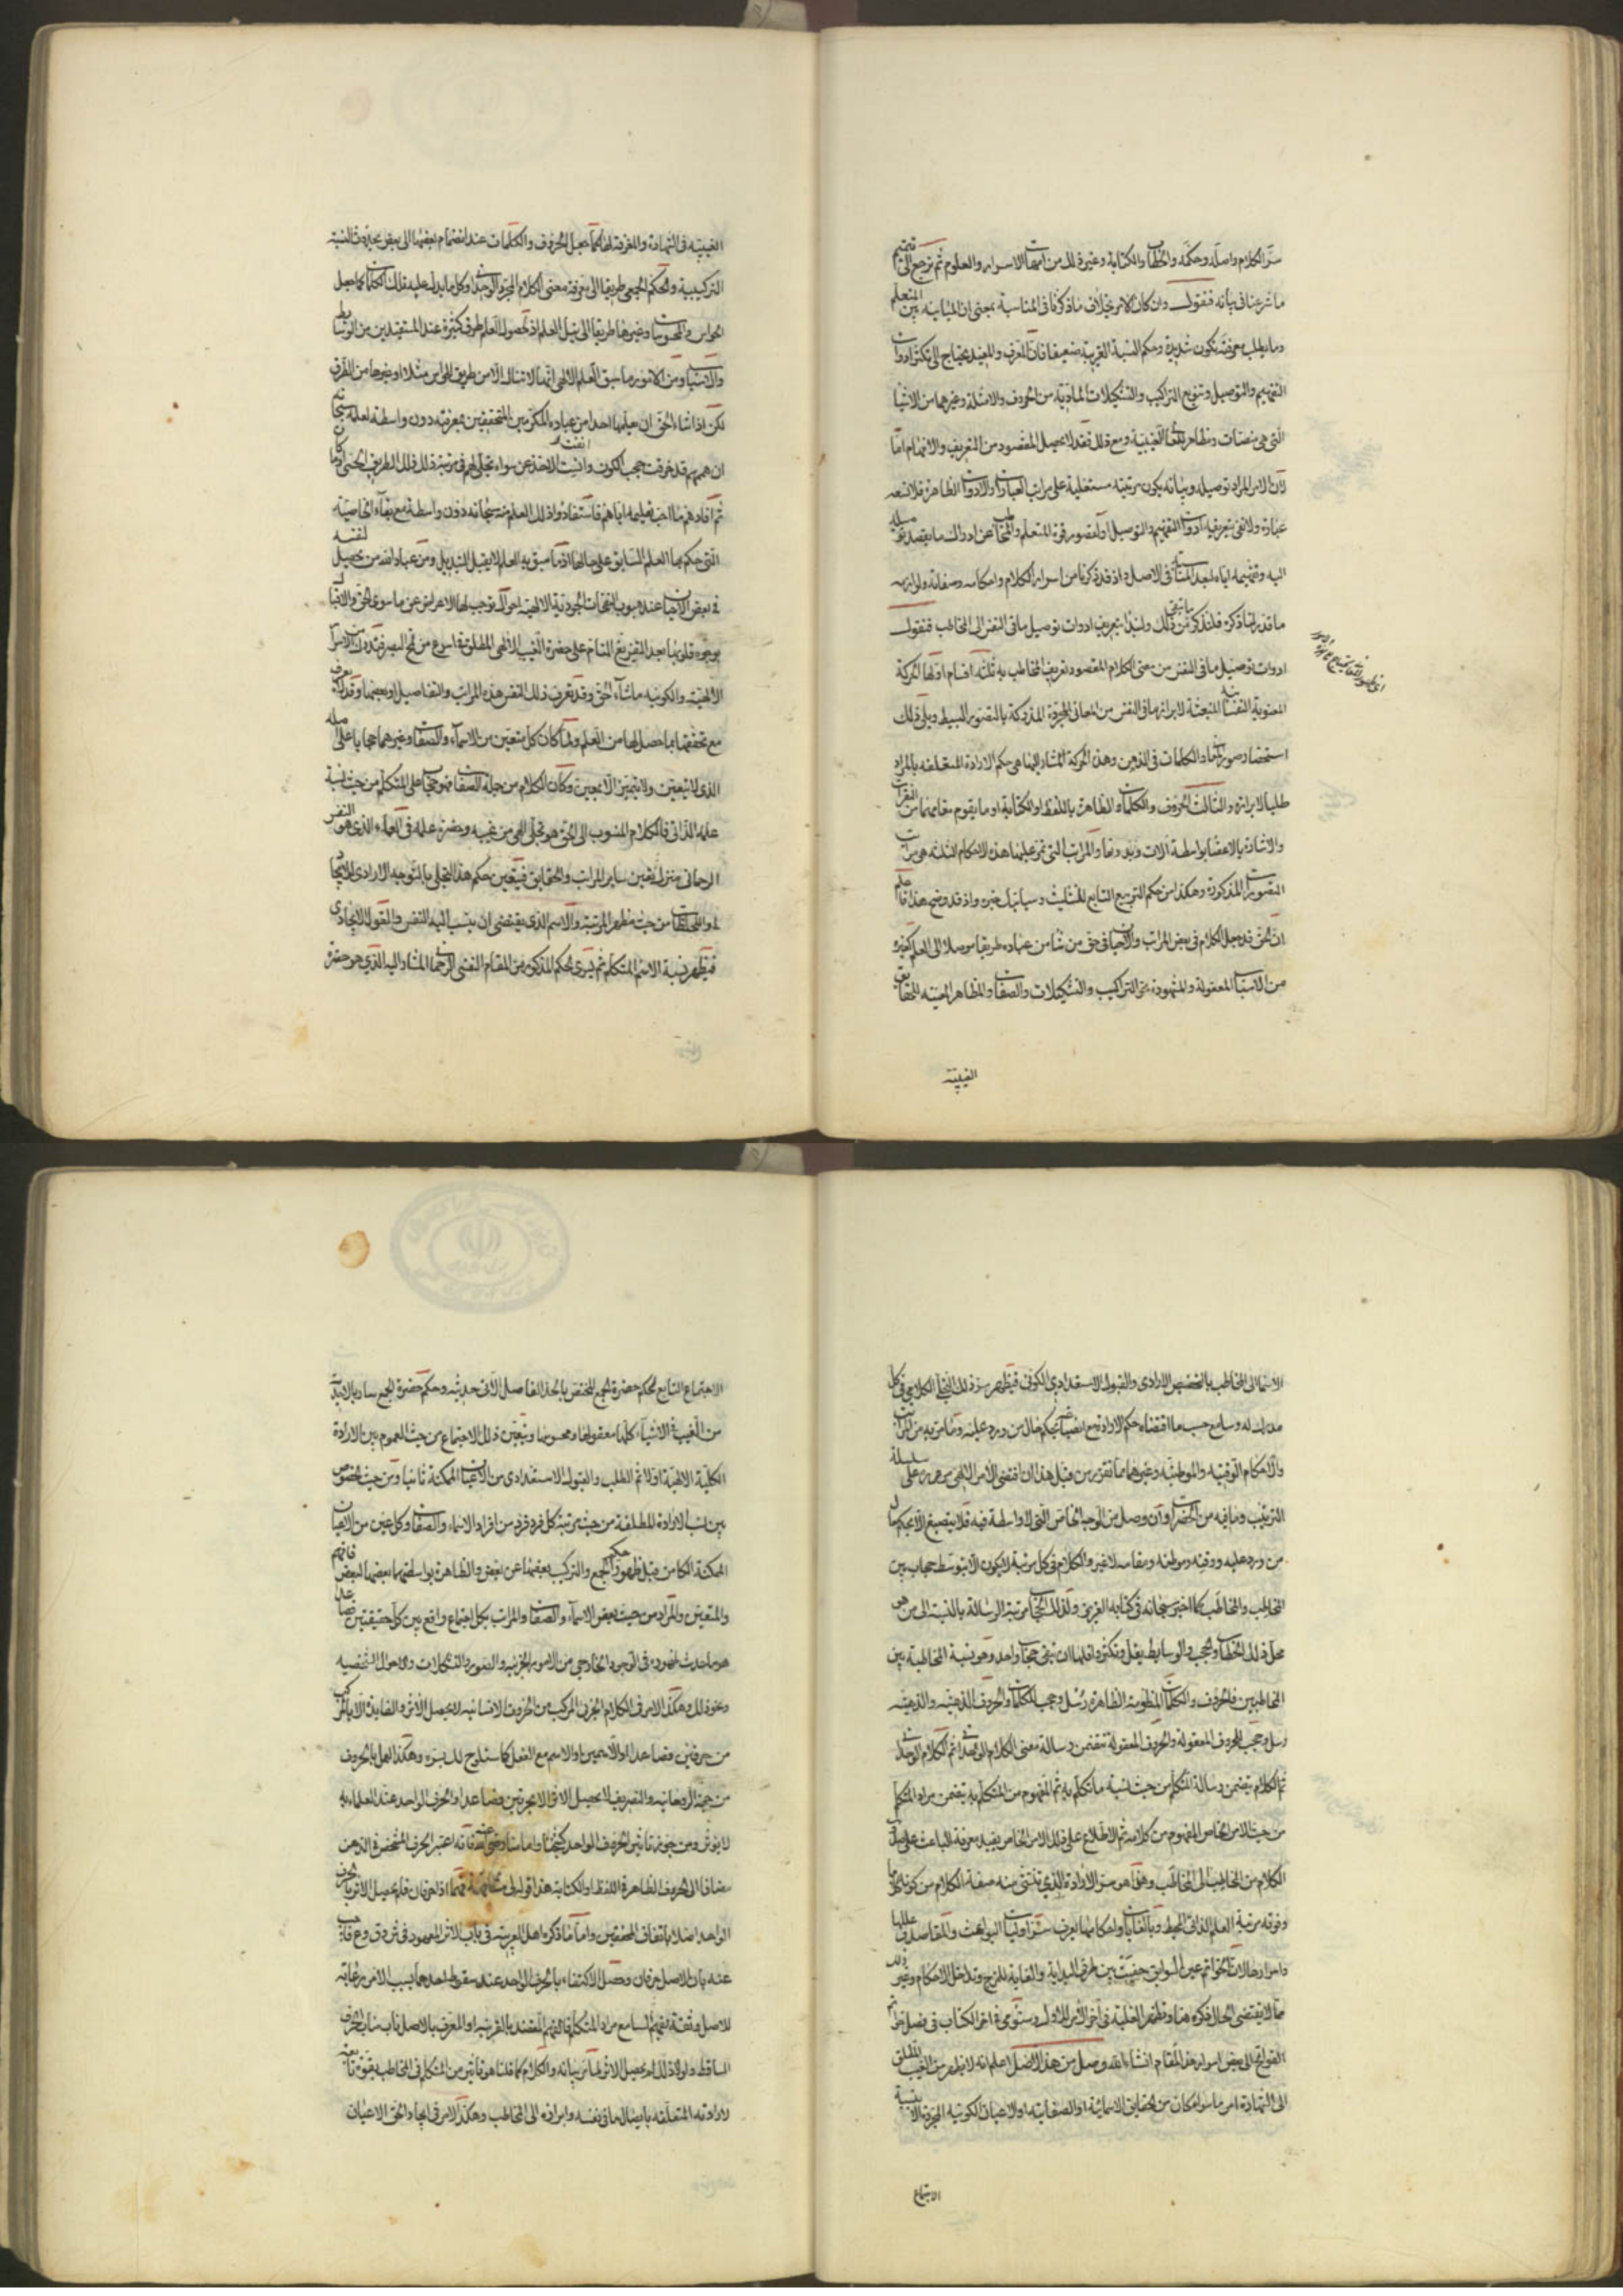 سرّ الكلام واصله وحكمه والخطاب والكتابة وغير ذلك من امهات الاسرار والعلوم ثم نرجع الى تتميم
ما شرعنا فى بيانه فنقول وان كان الامر بخلاف ما ذكرنا فى المناسبة بمعنى ان المباينة بين المتعلم
وما يطلب معرفته تكون شديدة وحكم النسبة القريبة ضعيفا فان المعرف والمفيد يحتاج الى تكثر ادوات
التفهيم والتوصيل وتنويع التراكيب والتشكيلات المادية من الحروف والامثلة وغيرهما من الاشيا
التى هى منصات ومظاهر للمعانى الغيبية ومع ذلك فقد لا يحصل المقصود من التعريف والافهام اما
لان الامر المراد توصيله وبيانه يكون مرتبته مستعلية على مراتب العبارات والادوات الظاهرة فلا تسعه
عبارة ولا تفى بتعريفه ادوات التفهيم والتوصيل او لقصور قوة المتعلم والمخاطب عن ادراك ما يقصد توصيله
اليه وتفهيمه اياه لبعد المناسبة فى الاصل واذ قد ذكرنا من اسرار الكلام واحكامه وصفاته ولوازمه
ما قدر لنا ذكره فلنذكر ما تبقى من ذلك ولنبدا بتعريف ادوات توصيل ما فى النفس الى المخاطب فنقول
ادوات توصيل ما فى النفس من معنى الكلام المقصود تعريف المخاطب به ثلثة اقسام اولها الحركة
المعنوية النفسانية المنبعثة لابراز ما فى النفس من المعانى المجردة المدركة بالتصور البسيط ويلى ذلك
استحضار صور المعانى والكلمات فى الذهن وهذه الحركة المشار اليها هى حكم الارادة المتعلقه بالمراد
طلبا لابرازه والثالث الحروف والكلمات الظاهرة باللفظ او الكتابة او ما يقوم مقامهما من النقرات
والاشارة بالاعضا بواسطة آلات وبدونها والمراتب التى تمر عليها هذه الاحكام الثلثه هى مراتب
التصورات المذكورة وهكذا من حكم التربيع التابع للتثليث وسياتيك خبره واذ قد وضح هذا فاعلم
ان الحق قد جعل الكلام فى بعض المراتب والاحيان فى حق من شا من عباده طريقا موصلا الى العلم كغيره
من الاسباب المعقولة والمشهودة نحو التراكيب والتشكيلات والصفات والمظاهر المعينه للحقايق
الغيبيّه
الغيبيّه فى الشهادة والمعرفة لها كما جعل الحروف والكلمات عند انضمام بعضها الى بعض بحدوث النسبة
التركيبية والحكم الجمعى طريقا الى معرفة معنى الكلام المجرد الوحدانى وكل ما يدل عليه تلك الكلمات كما جعل
الحواس والمحسوسات وغيرها طريقا الى نيل العلم اذ لحصول العلم طرق كثيرة عند المستفيدين من الوسايط
والاسباب ومن الامور ما سبق العلم الالهى انها لا تنال الا من طريق الحواس مثلا او غيرها من الطرق
لكن اذا شاء الحق ان يعلمها احدا من عباده المكرمين المتحققين بمعرفته دون واسطة لعلمه سبحانه
ان هممهم قد خرقت حجب الكون وانفت الاخذ عن سواه تجلى لهم فى مرتبة ذلك الطريق الحسى او ما كان
ثم افادهم ما احب تعليمه اياهم فاستفادوا ذلك العلم منه سبحانه دون واسطة مع بقاء الخاصية
التى حكم بها العلم السابق على حالها اذ ما سبق به العلم لا يقبل التبديل ومن عباد الله من يحصل لنفسه
فى بعض الاحيان عند هبوب النفحات الجودية الالهية احوال توجب لها الاعراض عن ما سوى الحق والاقبال
بوجوه قلوبها بعد التفريغ التام على حضرة الغيب الالهى المطلق فى اسرع من لمح البصر فتدرك من الاسرار
الالهية والكونيه ما شاء الحق وقد تعرف ذلك النفس هذه المراتب والتفاصيل او بعضها وقد لا تعرف
مع تحققها بما حصل لها من العلم ولما كان كل متعين من الاسماء والصفات وغيرهما حجابا على اصله
الذى لا يتعين ولا يتميز الا بمعين وكان الكلام من جملة الصفات فهو حجاب على المتكلم من حيث نسبة
علمه الذاتى فالكلام المنسوب الى الحق هو تجلى الهى من غيبه وحضرة علمه فى العماء الذى هو النفس
الرحمانى ومنزل تعين ساير المراتب والحقايق فيتعين بحكم هذا التجلى بالتوجه الارادى للايجاد
او للخطاب من حيث مظهر المرتبة والاسم الذى يقتضى ان ينسب اليه النفس والقول الايجادى
فيظهر نسبة الاسم المتكلم ثم يسرى الحكم المذكور من المقام النفسى الرحمانى المشار اليه الذى هو حضرة
الاسما الى المخاطب بالتخصيص الارادى والقبول الاستعدادى الكونى فيظهر سر ذلك التجلى الكلامى فى كل
مدرك له وسامع حسب ما اقتضاه حكم الارادة مع انصباغه بحكم حال من ورد عليه وما مر به من المراتب
والاحكام الوقتيه والموطنيه وغيرهما مما تقرر من قبل هذا ان اقتضى الامر الالهى مروره على سلسلة
الترتيب وما فيه من الحضرات وان وصل من الوجه الخاص الذى لا واسطة فيه فلا ينصبغ الا بحكم حال
من ورد عليه ووقته وموطنه ومقامه لا غير والكلام فى كل مرتبة لا يكون الا بتوسط حجاب بين
المخاطِب والمخاطَب كما اخبر سبحانه فى كتابه العزيز ولذلك الحجاب مرتبة الرسالة بالنسبة الى من هو
محل ذلك الخطاب والحجب والوسايط يقل ويكثر واقلها ان يبقى حجاب واحد وهو نسبة المخاطبة بين
المخاطبين فالحروف والكلمات المنظومة الظاهرة رسل وحجب للكلمات والحروف الذهنيه والذهنية
رسل وحجب للحروف المعقولة والحروف المعقولة تتضمن رسالة معنى الكلام الوحدانى ثم الكلام الوحدانى
ثم الكلام يتضمن رسالة المتكلم من حيث نسبة ما تكلم به ثم المفهوم من المتكلم به يتضمن مراد المتكلم
من حيث الامر الخاص المفهوم من كلامه ثم الاطلاع على ذلك الامر الخاص يفيد معرفة الباعث على صدور
الكلام من المخاطِب الى المخاطَب وهذا هو سر الارادة الذى تنتشى منه صفة الكلام من كونه كلاما
وفوقه مرتبة العلم الذاتى المحيط وبالغايات واحكامها يعرف سر اوليات البواعث والمقاصد وعللها
واسرارها لان الخواتم عين السوابق خفيت بين طرفى البداية والغاية للمزج وتداخل الاحكام وغير ذلك
مما لا يقتضى الحال ذكره هنا وتظهر الغلبة فى اخر الامر للاول وسنومى فى اخر الكتاب فى فصل خواتم
الفواتح الى بعض اسرار هذا المقام انشاء الله وصل من هذا الاصل اعلم انه لا يظهر من الغيب المطلق
الى الشهادة امر ما سوا كان من الحقايق الاسمائية او الصفاتيه او الاعيان الكونيه المجردة الا بنسبة
الاجتماع
الاجتماع التابع لحكم حضرة الجمع المختص بالحد الفاصل الاتى حديثه وحكم حضرة الجمع سار بالاحدية
من الغيب فى الاشياء كلها معقولها ومحسوسها ويتعين ذلك الاجتماع من حيث العموم بين الارادة
الكلية الالهية اولا ثم الطلب والقبول الاستعدادى من الاعيان الممكنة ثانيا ومن حيث الخصوص
بين نسب الارادة المطلقة من حيث مرتبة كل فرد فرد من افراد الاسماء والصفات وكل عين من الاعيان
الممكنة الكامن قبل ظهور حكم الجمع والتركيب بعضها عن بعض والظاهرة بواسطتهما بعضها لبعض فافهم
والمتعين والمراد من حيث بعض الاسماء والصفات والمراتب بكل اجتماع واقع بين كل حقيقتين فصاعدا
هو ما حدث ظهوره فى الوجود الخارجى من الامور الجزئيه والصور والتشكلات والاحوال الشخصيه
ونحو ذلك وهكذا الامر فى الكلام الجزئى المركب من الحروف الانسانيه لا يحصل الاثر والفايدة الا بالمركب
من حرفين فصاعدا او الاسمين او الاسم مع الفعل كما ستلوح لك بسره وهكذا العمل بالحروف
من جهة الروحانيه والتصريف لا يحصل الاثر الا بحرفين فصاعدا والحرف الواحد عند العلماء به
لا يؤثر ومن جوز تاثير الحرف الواحد كشيخنا وامامنا رضى الله عنه فانه اعتبر الحرف المشخص فى الذهن
مضافا الى الحرف الظاهر فى اللفظ او الكتابة هذا قوله لى مشافهة فهما اذا حرفان فلم يحصل الاثر بالحرف
الواحد اصلا باتفاق المحققين واما ما ذكره اهل العربية فى باب الاثر المعهود فى ش وق وع فاجيب
عنه بان الاصل حرفان وحصل الاكتفاء بالحرف الواحد عند سقوط احدهما بسبب الامر رعاية
للاصل وثقة بفهم السامع مراد المتكلم فالفهم المعتضد بالقرينة او المعرفة بالاصل ناب مناب الحرف
الساقط ولولا ذلك لم يحصل الاثر كما مر بيانه والكلام كما قلنا هو تاثير من المتكلم فى المخاطب بقوة تابعه
لارادته المتعلقه بايصال ما فى نفسه وابرازه الى المخاطب وهكذا الامر فى ايجاد الحق الاعيان